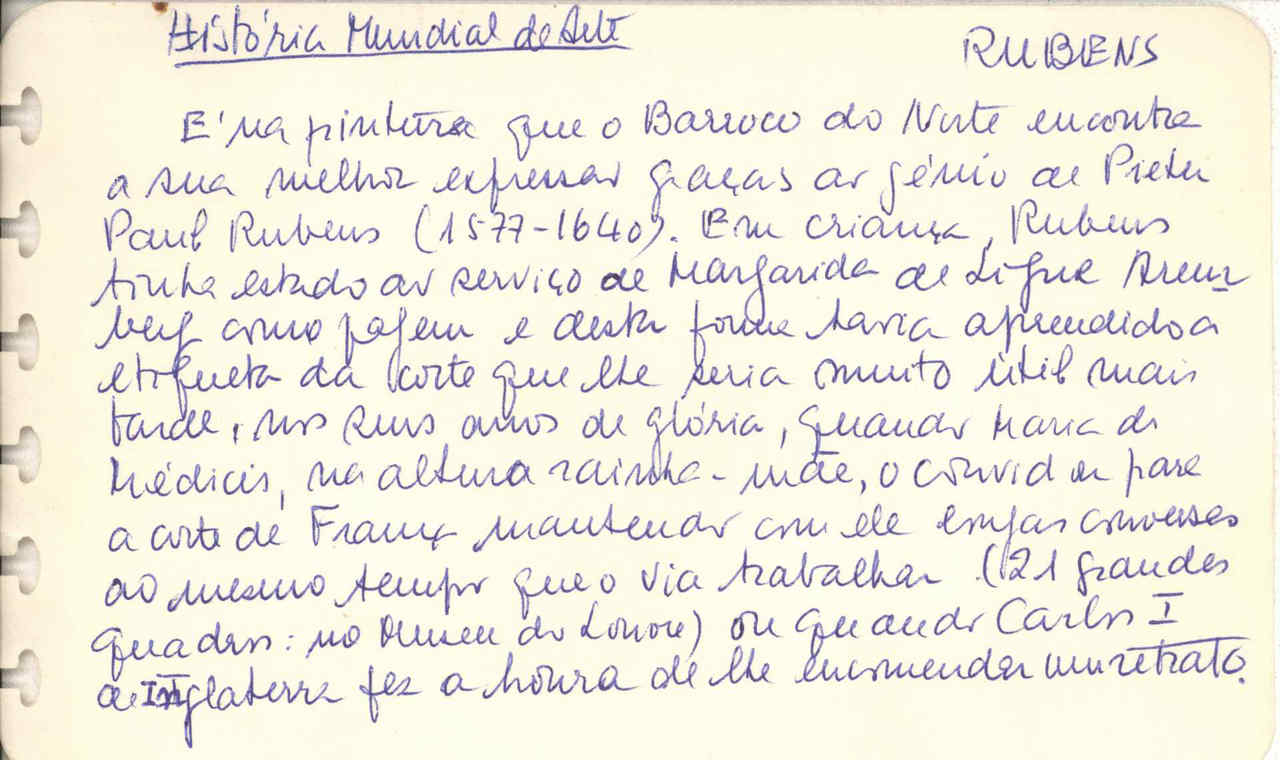 História Mundial de Arte
RUBENS
É na pintura que o Barroco do Norte encontra
a sua melhor expressão graças ao génio de Pieter
Paul Rubens (1577-1640). Em criança, Rubens
tinha estado ao serviço de Margarida de Ligne Arem-
berg como pagem e desta forma havia aprendido a
etiqueta da corte que lhe seria muito útil mais
tarde, nos seus anos de glória, quando Maria de
Médicis, na altura rainha-mãe, o convidou para
a corte de França mantendo com ele longas conversas
ao mesmo tempo que o via trabalhar (21 grandes
quadros: no Museu do Louvre) ou quando Carlos I
de Inglaterra fez a honra de lhe encomendar um retrato.